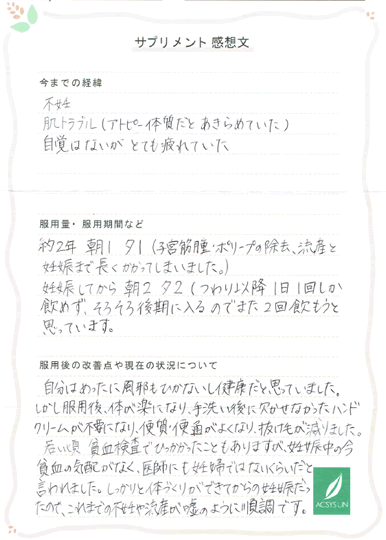 サプリメント 感想文
今までの経緯
不妊
肌トラブル(アトピー体質だとあきらめていた)
自覚はないがとても疲れていた
服用量・服用期間など
約2年 朝1 夕1 (子宮筋腫・ポリープの除去、流産と
妊娠まで長くかかってしまいました。)
妊娠してから 朝2 夕2 (つわり以降1日1回しか
飲めず、そろそろ後期に入るのでまた2回飲もうと
思っています。
服用後の改善点や現在の状況について
自分はめったに風邪もひかないし健康だと思っていました。
しかし服用後、体が楽になり、手洗い後に欠かせなかったハンド
クリームが不要になり、便質・便通がよくなり、抜け毛が減りました。
若い頃 貧血検査でひっかかったこともありますが、妊娠中の今
貧血の気配がなく、医師にも妊婦ではないくらいだと
言われました。しっかりと体づくりができてからの妊娠だっ
たので、これまでの不妊や流産が嘘のように順調です。
ACSYSUN